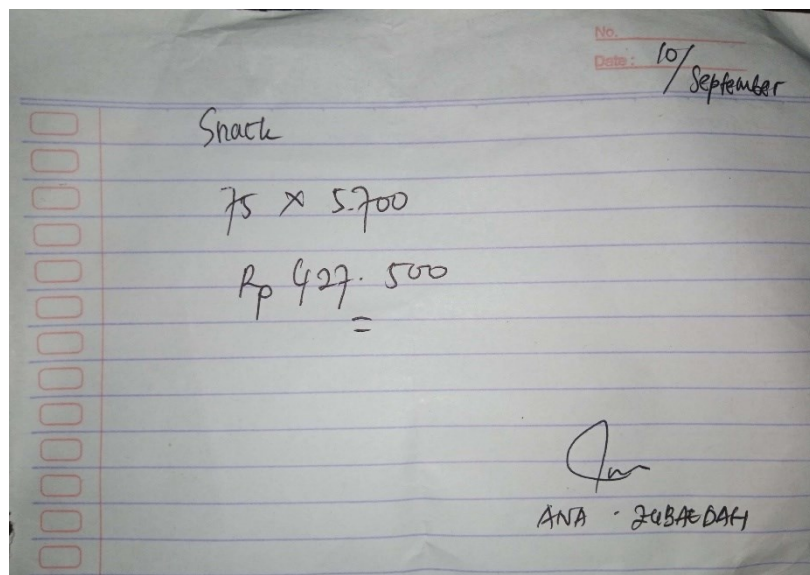 No.
Date: 10/September
Snack
75 x 5.700
Rp 427.500
ANA . ZUBAEDAH